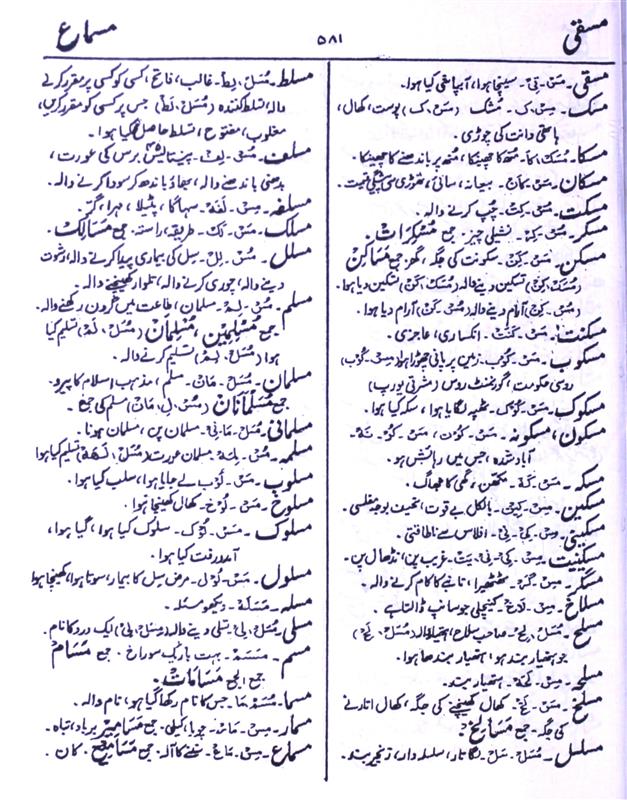 مسقی
۵۸۱
مسماع
مسقی۔ مَسْ۔ قِیْ۔ سینچا ہوا، آبپاشی کیا ہوا۔
مسک۔ مِسْ۔ ک۔ مُشک (مَسْ۔ ک) پوست، کھال،
ہاتھی دانت کی چوڑی۔
مسکا۔ مُسْکَا۔ مُنھ کا چھینکا، منھ پر باندھنے کا چھینکا۔
مسکان۔ مُسْ۔ کَان۔ بیعانہ، سائی،
مسکت۔ مُسْ۔ کِتْ۔ چُپ کرنے والہ۔
مسکر۔ مُسْ۔ کِرْ۔ نشیلی چیز۔ جمع مُسْکِرَات۔
مسکن۔ مَسْ۔ کَنْ۔ سکونت کی جگہ، گھر، جمع مَسَاکِنْ
(مُسَکْ، کِنْ) تسکین دینے والہ (مُسَکْ، کَنْ) تسکین دیا ہوا۔
(مُسْ۔ کِنْ) آرام دینے والہ (مُسْ۔ کَنْ) آرام دیا ہوا۔
مسکنت۔ مَسْ۔ کَنَتْ۔ انکساری، عاجزی۔
مسکوب۔ مَسْ۔ کُوْب۔ زمین پر پانی چھوڑا ہوا (مِسْ۔ کُوْب)
روسی حکومت، گورنمنٹ روس (مشرقی یورپ)
مسکوک۔ مَسْ۔ کُوْک۔ ٹھپہ لگایا ہوا، سکہ کیا ہوا۔
مسکون، مسکونہ۔ مَسْ۔ کُوْن، مَسْ۔ کُوْ۔ نَہْ۔
آباد شدہ، جس میں رہائش ہو۔
مسکہ۔ مَسْ۔ کَہْ۔ مکھن، گھی کا جھاگ۔
مسکین۔ مِسْ۔ کِیْنْ۔ بالکل بے قوت، نحیف بوجہ مفلسی۔
مسکینی۔ مِسْ۔ کِیْ۔ نِیْ۔ افلاس سے ناطاقتی۔
مسکینیت۔ مِسْ۔ کِیْ۔ نِیْ۔ یَتْ۔ غریب پن، نڈھال پن۔
مسگر۔ مِسْ۔ گَرْ۔ ٹھٹھیرا، تانبے کا کام کرنے والہ۔
مسلاخ۔ مِسْ۔ لَاخْ۔ کینچلی جو سانپ ڈالتا ہے۔
مسلح۔ مُسَلْ۔ لِحْ۔ صاحب سلاح، ہتھیار والہ (مُسَلْ۔ لَحْ)
جو ہتھیار بند ہو، ہتھیار بندھا ہوا۔
مسلحہ۔ مِسْ۔ لَحَہْ۔ ہتھیار بند۔
مسلخ۔ مَسْ۔ لَخْ۔ کھال کھینچنے کی جگہ، کھال اتارنے
کی جگہ۔ جمع مَسَالِخْ۔
مسلسل۔ مُسَلْ۔ سَلْ۔ لگاتار، سلسلہ وار، زنجیر بند۔
مسلط۔ مُسَلْ، لِطْ۔ غالب، فاتح، کسی کو کسی پر مقرر کرنے
والہ، تسلط کنندہ (مُسَلْ، لَطْ) جس پر کسی کو مقرر کریں،
مغلوب، مفتوح، تسلط حاصل کیا ہوا۔
مسلف۔ مُسْ۔ لِفْ۔ پینتالیس ۴۵ برس کی عورت،
بدھنی باندھنے والہ، بھاؤ باندھ کر سودا کرنے والہ۔
مسلفہ۔ مِسْ۔ لَفَہْ۔ سہاگا، پٹیلا،
مسلک۔ مَسْ۔ لَکْ۔ طریقہ، راستہ۔ جمع مَسَالِکْ۔
مسلل۔ مُسْ۔ لِلْ۔ سِل کی بیماری پیدا کرنے والہ، رشوت
دینے والہ، چوری کرنے والہ، تلوار کھینچنے والہ۔
مسلم۔ مُسْ۔ لِمْ۔ مسلمان، طاعت میں گردن رکھنے والہ۔
جمع مُسْلِمِیْن، مُسْلِمَان (مُسَلْ، لَمْ) تسلیم کیا
ہوا (مُسَلْ، لِمْ) تسلیم کرنے والہ۔
مسلمان۔ مُسَلْ۔ مَانْ۔ مسلم، مذہب اسلام کا پیرو۔
جمع مُسَلْمَانَان (مُسْ، لِ، مَانْ) مسلم کی جمع۔
مسلمانی۔ مُسَلْ۔ مَا۔ نِیْ۔ مسلمان پن، مسلمان ہونا۔
مسلمہ۔ مُسْ۔ لِمَہْ۔ مسلمان عورت (مُسَلْ، لَمَہْ) تسلیم کیا ہوا
مسلوب۔ مَسْ۔ لُوْب۔ لے جایا ہوا، سلب کیا ہوا۔
مسلوخ۔ مَسْ۔ لُوْخ۔ کھال کھینچا ہوا۔
مسلوک۔ مَسْ۔ لُوْک۔ سلوک کیا ہوا، گیا ہوا،
آمد و رفت کیا ہوا۔
مسلول۔ مَسْ۔ لُوْل۔ مرض سِل کا بیمار، سوتا ہوا، کھینچا ہوا
مسلہ۔ مَسْلَہْ۔ دیکھو مسئلہ۔
مسلی۔ مُسَلْ، لِیْ۔ تسلی دینے والہ (مِسَلْ، لِیْ) ایک درد کا نام۔
مسم۔ مَسَمْ۔ بہت باریک سوراخ۔ جمع مَسَام
جمع الجمع مَسَامَات۔
مسما۔ مُسَمْ مَا۔ جس کا نام رکھا گیا ہو، نام والہ۔
مسمار۔ مِسْ۔ مَارْ۔ چوبا، کیلی۔ جمع مَسَامِیر۔ برباد، تباہ۔
مسماع۔ مِسْ۔ مَاعْ۔ سننے کا آلہ۔ جمع مَسَامِیْع۔ کان۔